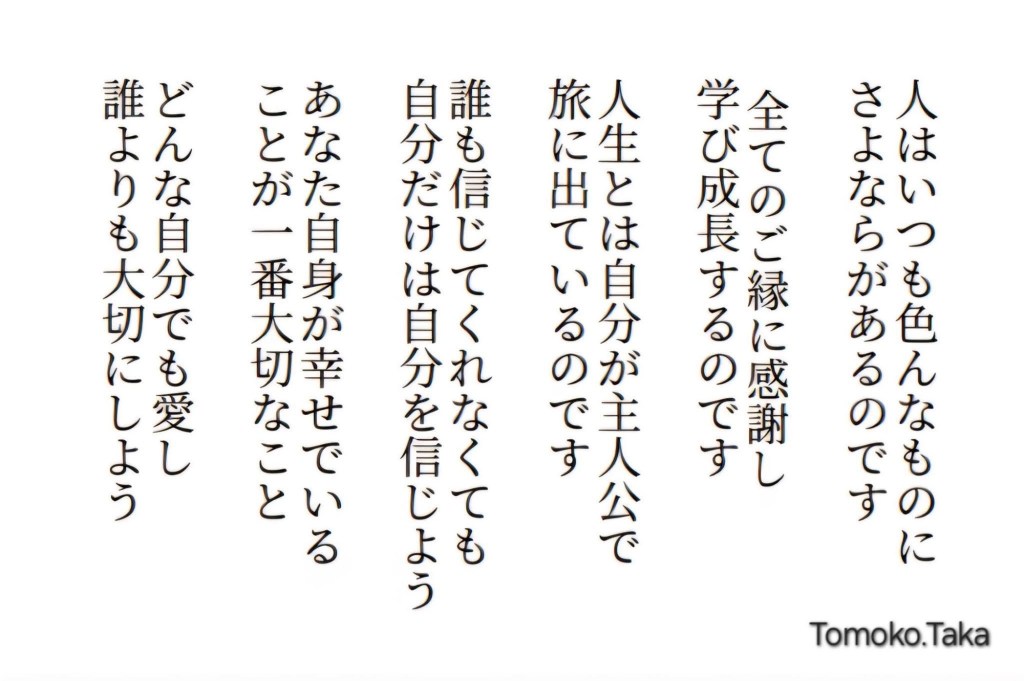 人はいつも色んなものに
さよならがあるのです
全てのご縁に感謝し
学び成長するのです
人生とは自分が主人公で
旅に出ているのです
誰も信じてくれなくても
自分だけは自分を信じよう
あなた自身が幸せでいる
ことが一番大切なこと
どんな自分でも愛し
誰よりも大切にしよう
Tomoko.Taka